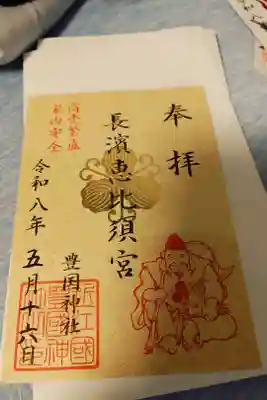 奉拝
長濱恵比須宮
豊国神社
令和八年五月十六日
商売繁盛
家内安全